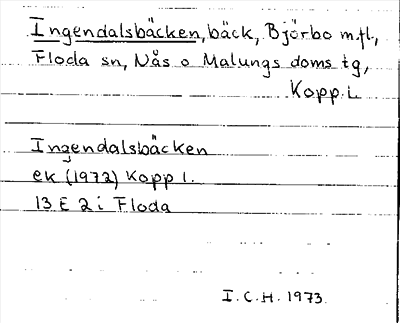 Ingendalsbäcken, bäck, Björbo m.fl.,
Floda sn, Nås o Malungs doms tg,
Kopp. L
Ingendalsbäcken
ek (1972) Kopp l.
13 E 2 i Floda
I.C.H. 1973.